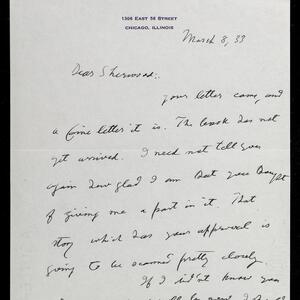 1306 EAST 58 STREET
CHICAGO, ILLINOIS
March 8, 33
Dear Sherwood:
your letter came, and
a fine letter it is. The book has not
yet arrived. I need not tell you
again how glad I am that you thought
of giving me a part in it. That
story which has your approval is
going to be scanned pretty closely.
If I didn't know you